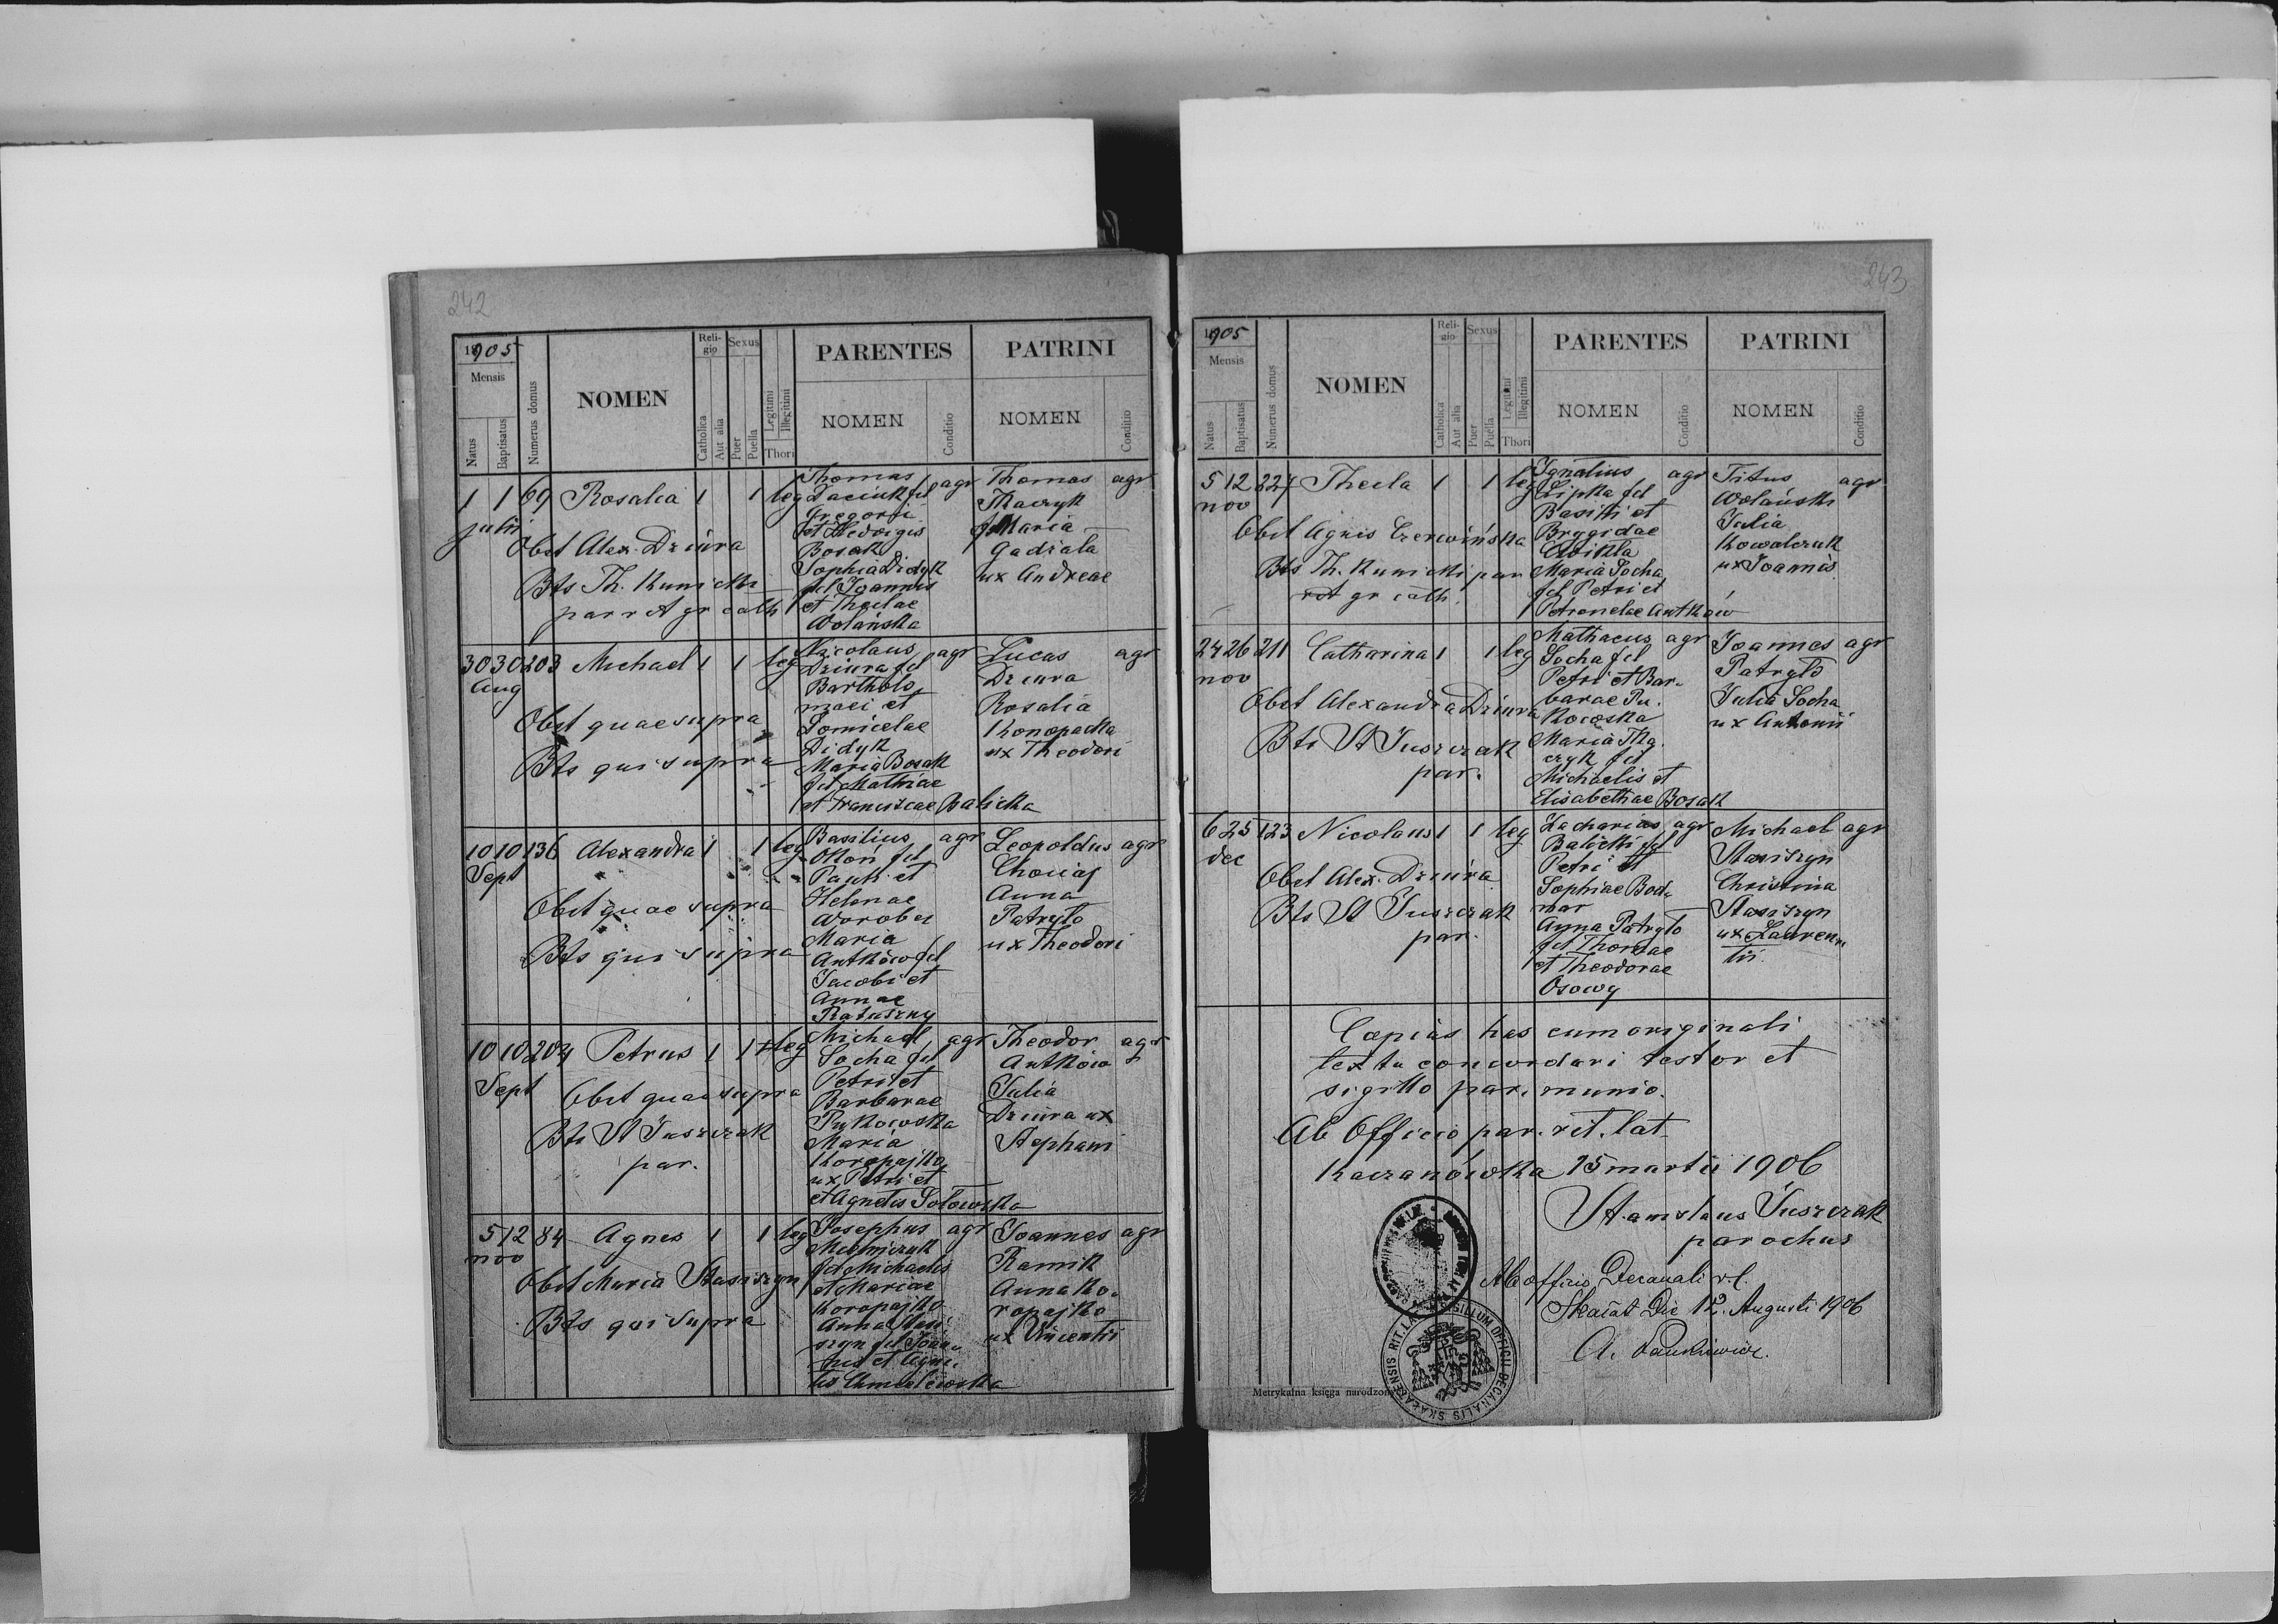 242
1905
Mensis
Natus
Baptisatus
Numerus domus
NOMEN
Reli-
gio
Catholica
Aut alia
Sexus
Puer
Puella
Legitimi
Illegitimi
Thori
PARENTES
NOMEN
Conditio
PATRINI
NOMEN
Conditio
1 1 69 Rosalia 1 1 leg
julii
Obst Alex. Dziura
Bts Th. Kunicki
par rit gr cath
Thomas agr
Daciuk fil
Gregorii
et Hedvigis
Bosak
Sophia Didyk
fil Joannis
et Theclae
Wolańska
Thomas agr
Tkaczyk
Maria
Gadzala
ux Andreae
30 30 203 Michael 1 1 leg
Aug
Obst quae supra
Bts qui supra
Nicolaus agr
Dziura fil
Bartholo
maei et
Domicelae
Didyk
Maria Bosak
fil Mathiae
et Franciscae Balicka
Lucas agr
Dziura
Rosalia
Konopacka
ux Theodori
10 10 136 Alexandra 1 1 leg
Sept
Obst quae supra
Bts qui supra
Basilius agr
Okoń fil
Pauli et
Helenae
Worobec
Maria
Antków fil
Jacobi et
Annae
Ratuszny
Leopoldus agr
Anna
Patryło
ux Theodori
10 10 204 Petrus 1 1 leg
Sept
Obst quae supra
Bts St Juszczak
par.
Michael agr
Socha fil
Petri et
Barbarae
Pukowska
Maria
Koropajko
ux Petri et
et Agnetis Sołowska
Theodor agr
Antków
Julia
Dziura ux
Stephani
5 12 84 Agnes 1 1 leg
nov
Obst Maria Stasiszyn
Bts qui supra
Josephus agr
fil Michaelis
et Mariae
Koropajko
Anna Stasi
szyn fil Joan
nis et Agne
tis Chmielewska
Joannes agr
Rannik
Anna Ko
ropajko
ux Vincentii
243
1905
Mensis
Natus
Baptisatus
Numerus domus
NOMEN
Reli-
gio
Catholica
Aut alia
Sexus
Puer
Puella
Legitimi
Illegitimi
Thori
PARENTES
NOMEN
Conditio
PATRINI
NOMEN
Conditio
5 12 227 Thecla 1 1 leg
nov
Obst Agnis Czerwińska
Bts Th. Kunicki par
rit gr cath.
Ignatius agr
Lipka fil
Basilii et
Brygidae
Cwikła
Maria Socha
fil Petri et
Petronelae Antków
Titus agr
Wolański
Julia
Kowalczuk
ux Joannis
24 26 211 Catharina 1 1 leg
nov
Obst Alexandra Dziura
Bts St Juszczak
par.
Mathaeus agr
Socha fil
Petri et Bar
barae Pu.
kowska
Maria Tka
czyk fil
Michaelis et
Elisabethae Bosak
Joannes agr
Patryło
Julia Socha
ux Antonii
6 25 123 Nicolaus 1 1 leg
dec
Obst Alex. Dziura
Bts St Juszczak
par.
Zacharias agr
Balicki fil
Petri et
Sophiae Bod
nar
Anna Patryło
fil Thomae
et Theodorae
Osowy
Michael agr
Stasiszyn
Christina
Stasiszyn
ux Lauren
tii
Copias has cum originali
textu concordari testor et
sigillo par. munio.
Ab Officio par. rit. lat
Kaczanówka 15 martii 1906
Stanislaus Juszczak
parochus
Ab officio Decanali r.l.
Skałat Die 12. Augusti 1906
SIGILLUM OFFICII DECANALIS SKAŁATENSIS RIT. LAT.
Metrykalna księga narodzon